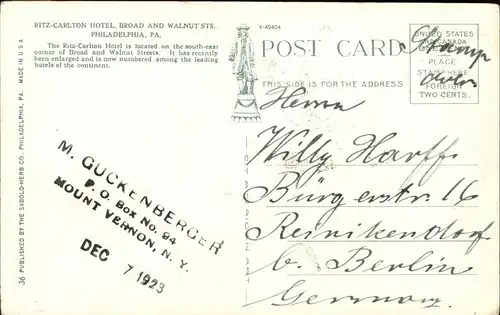 RITZ-CARLTON HOTEL, BROAD AND WALNUT STS.
PHILADELPHIA, PA.
The Ritz-Carlton Hotel is located on the south-east
corner of Broad and Walnut Streets. It has recently
been enlarged and is now numbered among the leading
hotels of the continent.
36 PUBLISHED BY THE SABOLD-HERB CO., PHILADELPHIA, PA. MADE IN U.S.A
M. GUCKENBERGER
P. O. Box No. 94
MOUNT VERNON, N. Y.
DEC 7 1923
A-49404
POST CARD
THIS SIDE IS FOR THE ADDRESS
UNITED STATES
AND CANADA
PLACE
STAMP HERE
FOREIGN
TWO CENTS.
Herrn
Willy Harff
Bürgerstr. 16
Reinikendorf
b. Berlin
Germany.